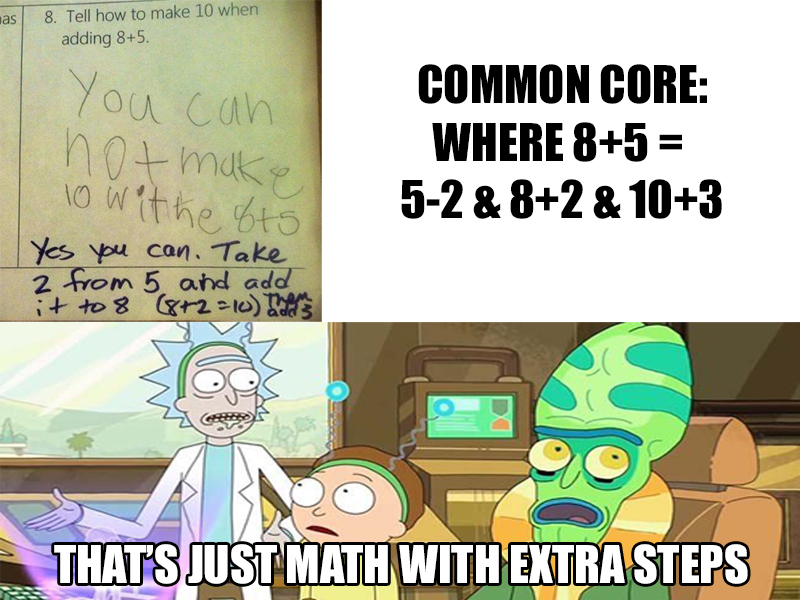 as
8. Tell how to make 10 when
adding 8+5.
You can
not make
10 withe 8+5
Yes you can. Take
2 from 5 and add
it to 8 (8+2=10) Then
add 3
COMMON CORE:
WHERE 8+5 =
5-2 & 8+2 & 10+3
THAT'S JUST MATH WITH EXTRA STEPS